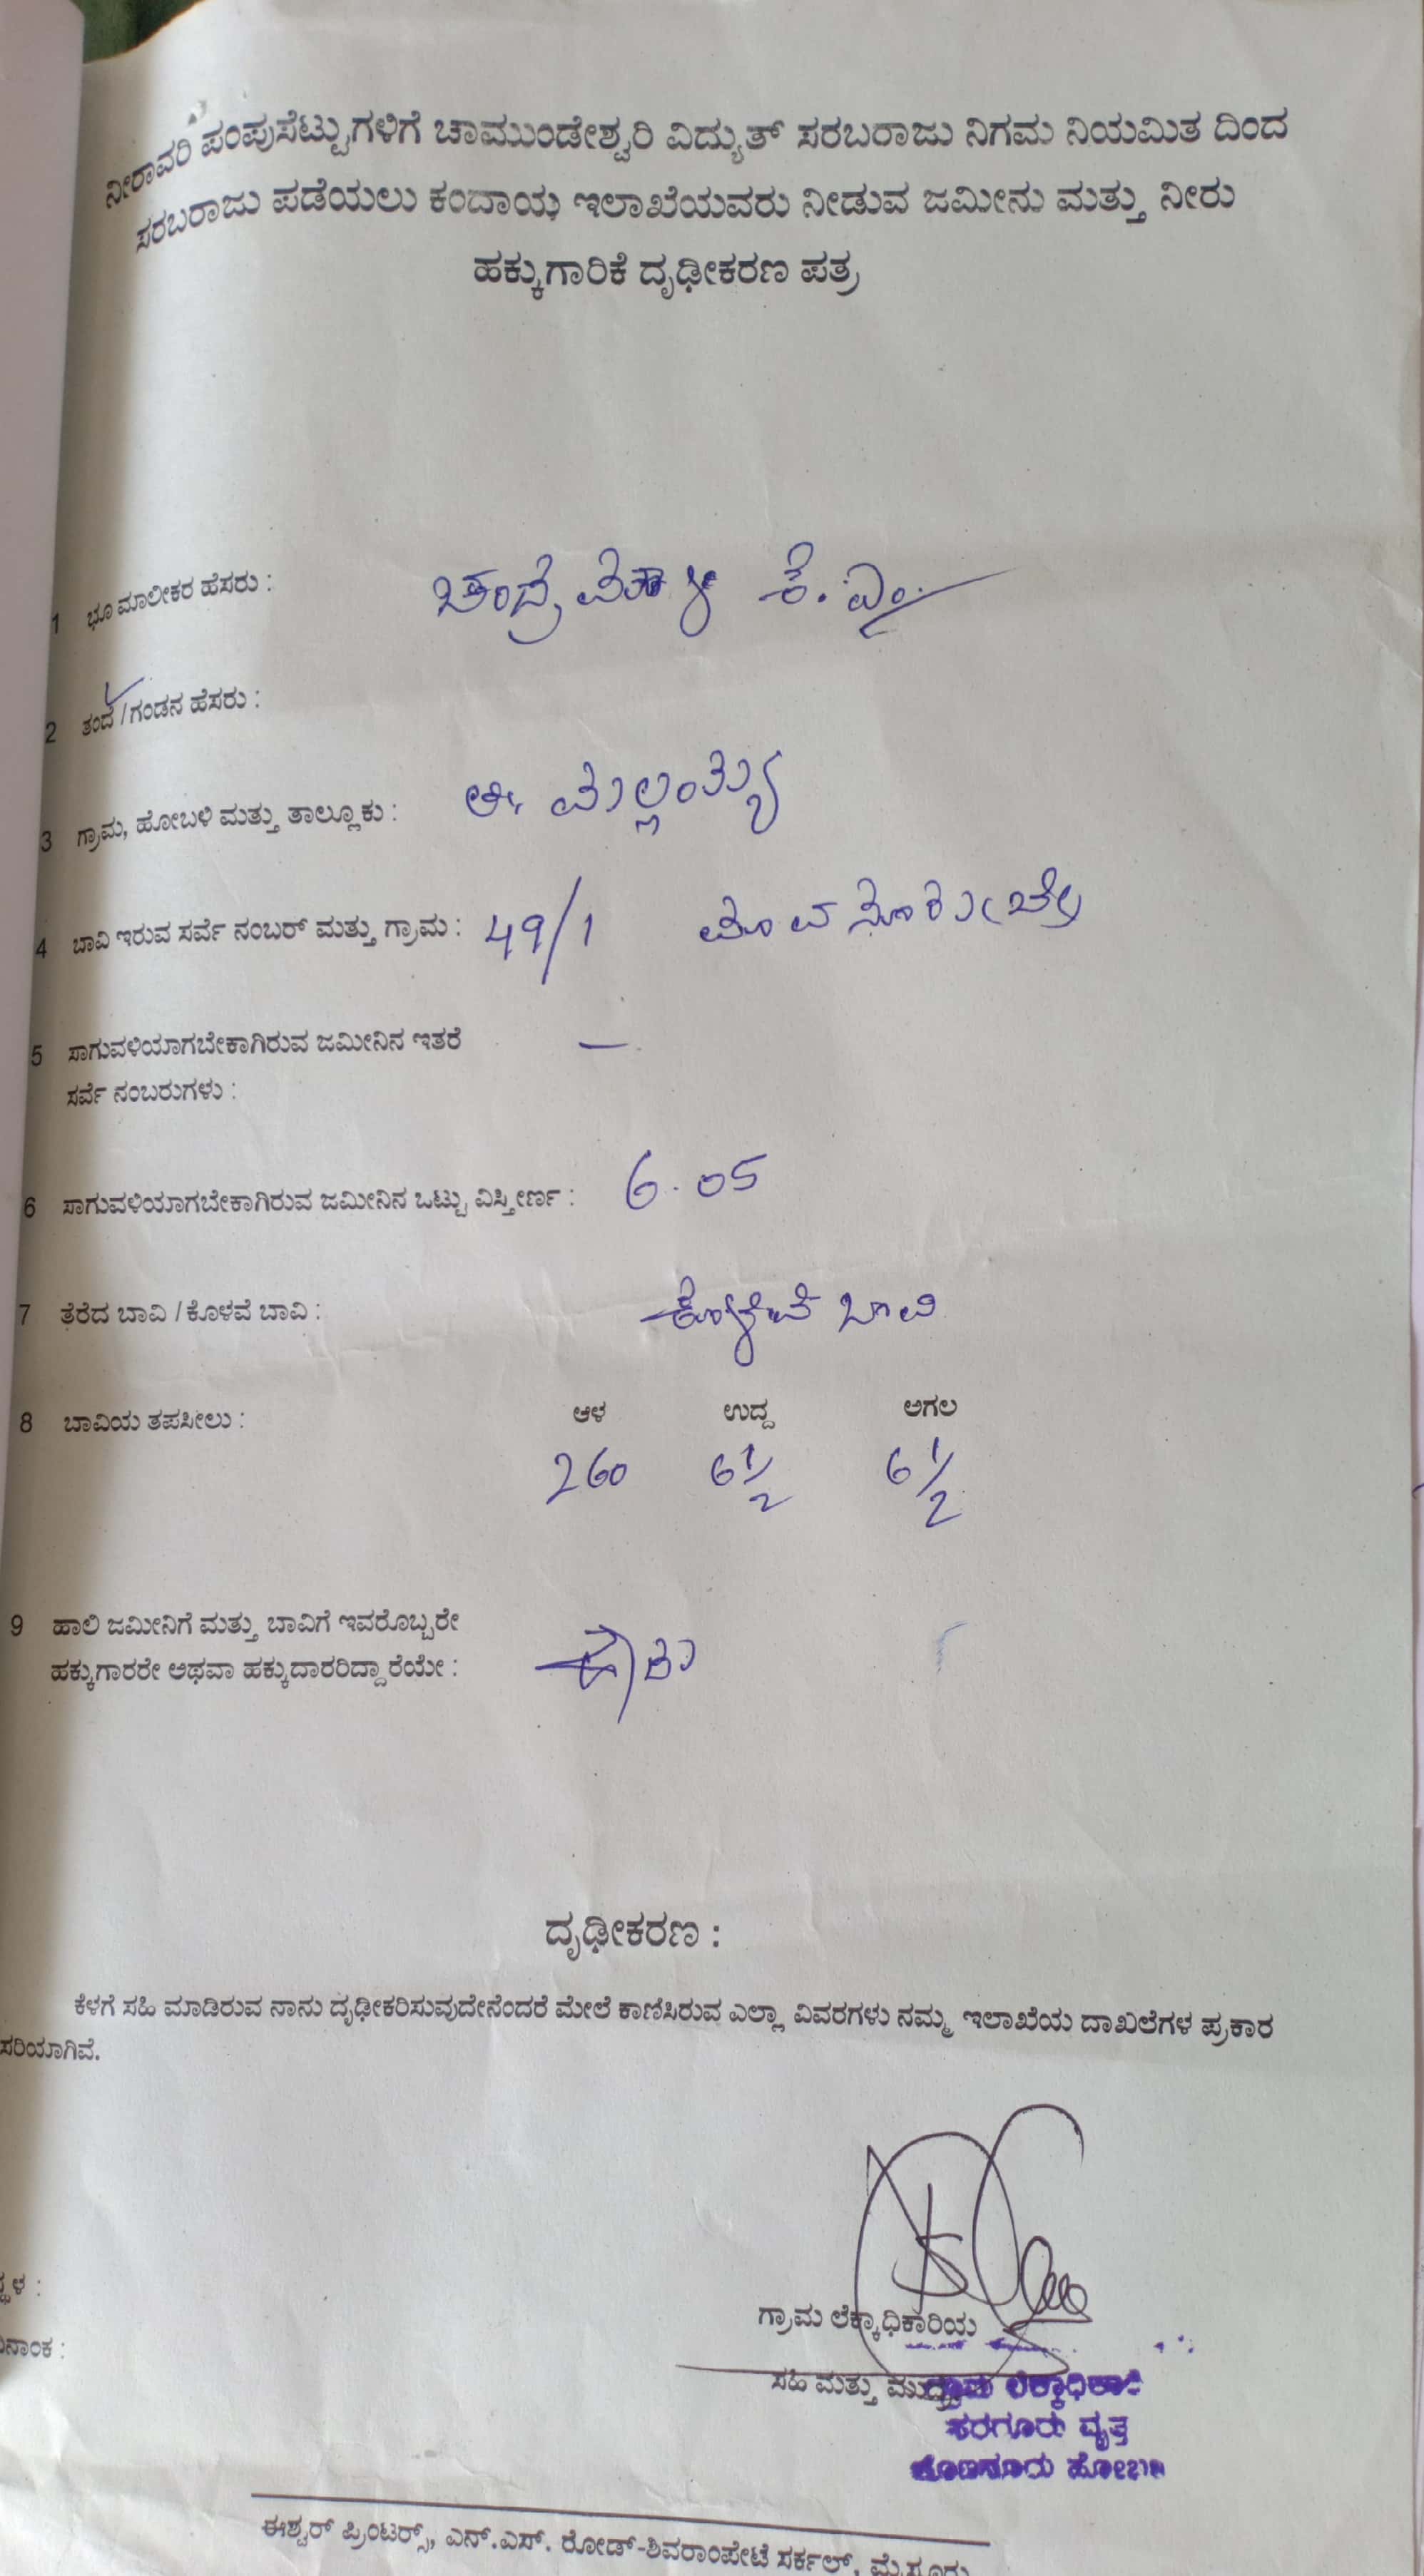 ನೀರಾವರಿ ಪಂಪುಸೆಟ್ಟುಗಳಿಗೆ ಚಾಮುಂಡೇಶ್ವರಿ ವಿದ್ಯುತ್ ಸರಬರಾಜು ನಿಗಮ ನಿಯಮಿತ ದಿಂದ
ಸರಬರಾಜು ಪಡೆಯಲು ಕಂದಾಯ ಇಲಾಖೆಯವರು ನೀಡುವ ಜಮೀನು ಮತ್ತು ನೀರು
ಹಕ್ಕುಗಾರಿಕೆ ದೃಢೀಕರಣ ಪತ್ರ
1 ಭೂ ಮಾಲೀಕರ ಹೆಸರು : ಕೆ. ಎಂ.
2 ತಂದೆ / ಗಂಡನ ಹೆಸರು :
3 ಗ್ರಾಮ, ಹೋಬಳಿ ಮತ್ತು ತಾಲ್ಲೂಕು :
4 ಬಾವಿ ಇರುವ ಸರ್ವೆ ನಂಬರ್ ಮತ್ತು ಗ್ರಾಮ : 49/1
5 ಸಾಗುವಳಿಯಾಗಬೇಕಾಗಿರುವ ಜಮೀನಿನ ಇತರೆ —
ಸರ್ವೆ ನಂಬರುಗಳು :
6 ಸಾಗುವಳಿಯಾಗಬೇಕಾಗಿರುವ ಜಮೀನಿನ ಒಟ್ಟು ವಿಸ್ತೀರ್ಣ : 6.05
7 ತೆರೆದ ಬಾವಿ / ಕೊಳವೆ ಬಾವಿ : ಕೊಳವೆ ಬಾವಿ
8 ಬಾವಿಯ ತಪಸೀಲು : ಆಳ ಉದ್ದ ಅಗಲ
260 6 1/2 6 1/2
9 ಹಾಲಿ ಜಮೀನಿಗೆ ಮತ್ತು ಬಾವಿಗೆ ಇವರೊಬ್ಬರೇ
ಹಕ್ಕುಗಾರರೇ ಅಥವಾ ಹಕ್ಕುದಾರರಿದ್ದಾರೆಯೇ :
ದೃಢೀಕರಣ :
ಕೆಳಗೆ ಸಹಿ ಮಾಡಿರುವ ನಾನು ದೃಢೀಕರಿಸುವುದೇನೆಂದರೆ ಮೇಲೆ ಕಾಣಿಸಿರುವ ಎಲ್ಲಾ ವಿವರಗಳು ನಮ್ಮ ಇಲಾಖೆಯ ದಾಖಲೆಗಳ ಪ್ರಕಾರ
ಸರಿಯಾಗಿವೆ.
ಗ್ರಾಮ ಲೆಕ್ಕಾಧಿಕಾರಿಯ
ಸಹಿ ಮತ್ತು
ಗ್ರಾಮ ಲೆಕ್ಕಾಧಿಕಾರಿ
ಸರಗೂರು ವೃತ್ತ
ಹೋಬಳಿ
ಈಶ್ವರ್ ಪ್ರಿಂಟರ್ಸ್, ಎನ್.ಎಸ್. ರೋಡ್-ಶಿವರಾಂಪೇಟೆ ಸರ್ಕಲ್, ಮೈಸೂರು